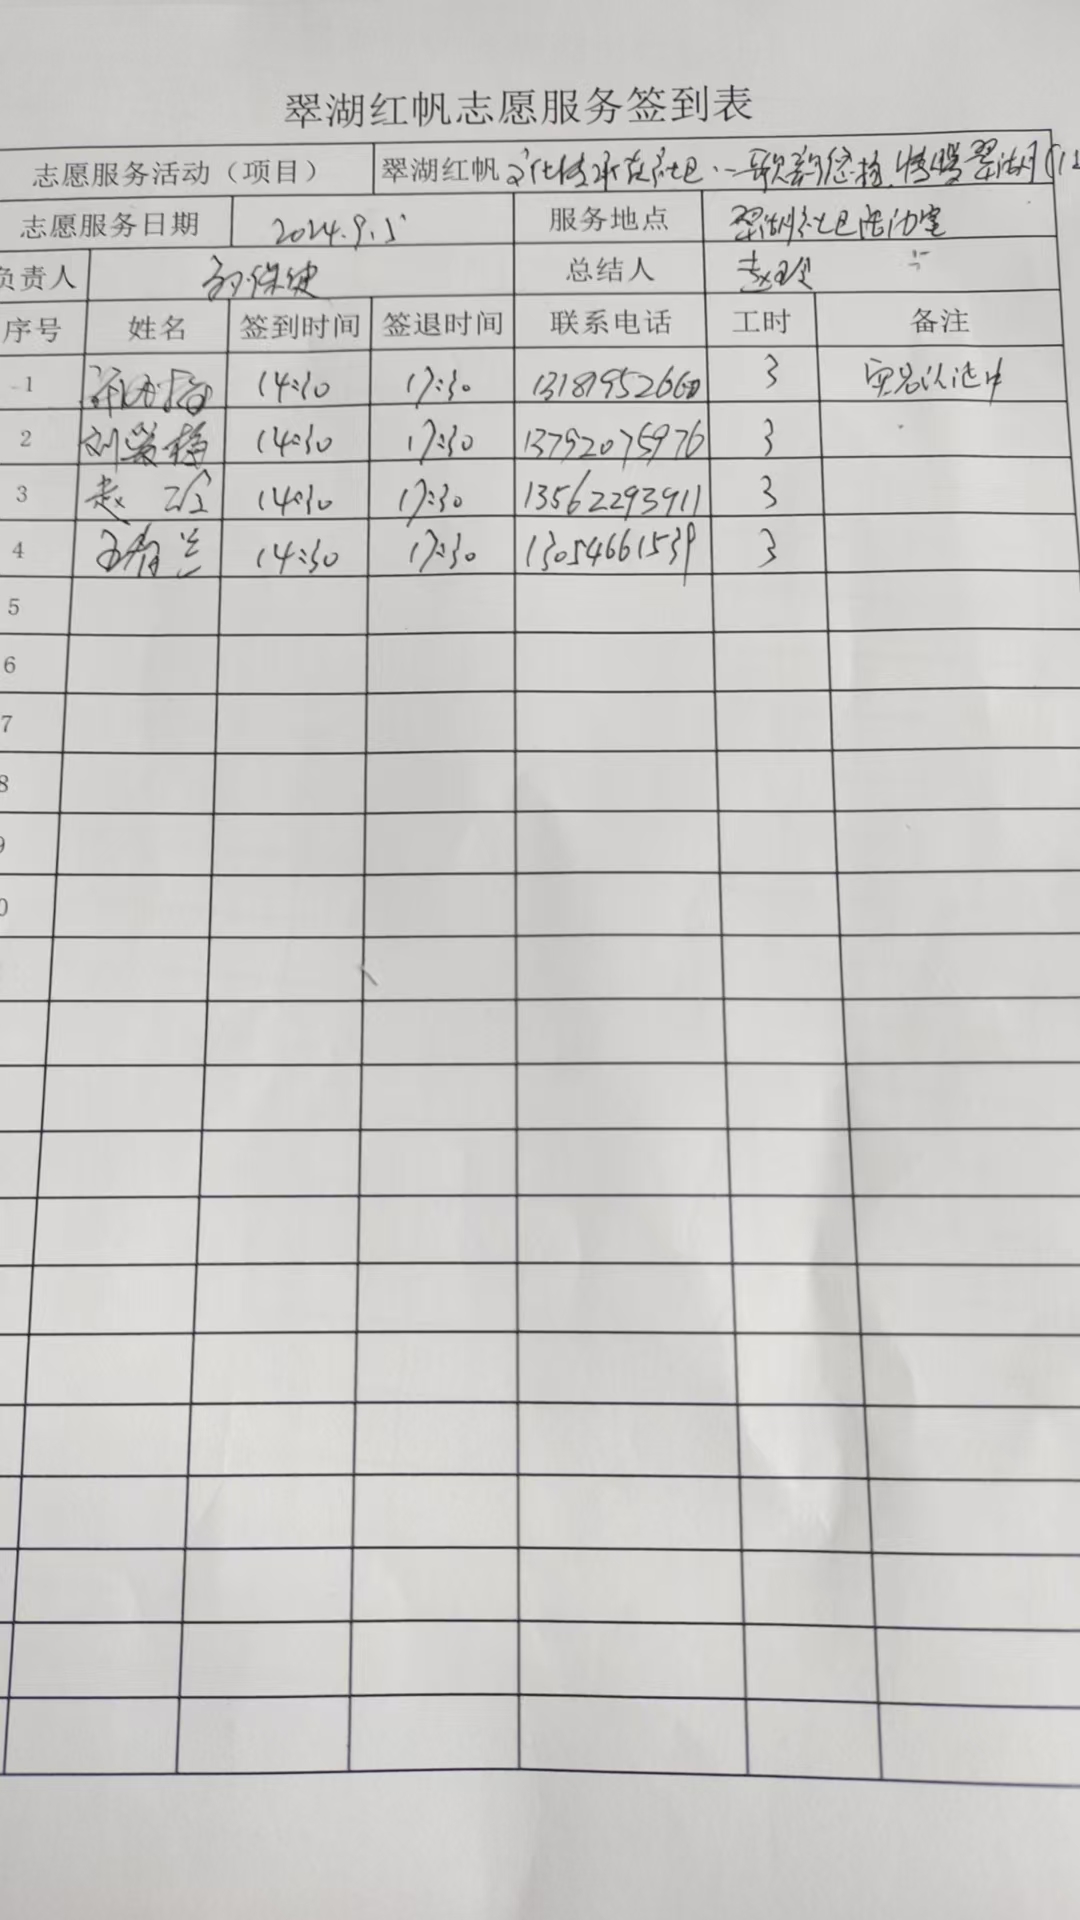 翠湖红帆志愿服务签到表
志愿服务活动（项目） 翠湖红帆文化传承在社区·一歌韵悠扬,情暖翠湖
志愿服务日期 2024.9.5 服务地点 翠湖社区活动室
负责人 保健 总结人 赵玲
序号 姓名 签到时间 签退时间 联系电话 工时 备注
1 14:30 17:30 1318952660 3 实名认证中
2 刘爱梅 14:30 17:30 13792075976 3
3 赵玲 14:30 17:30 13562293911 3
4 王有兰 14:30 17:30 13054661539 3
5
6
7
8
9
0